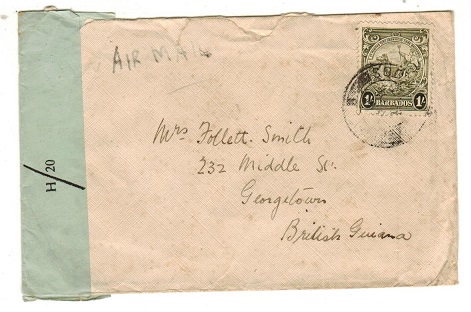 AIR MAIL
1/- BARBADOS 1/-
Mrs Follett-Smith
232 Middle St.
Georgetown
British Guiana
H/20